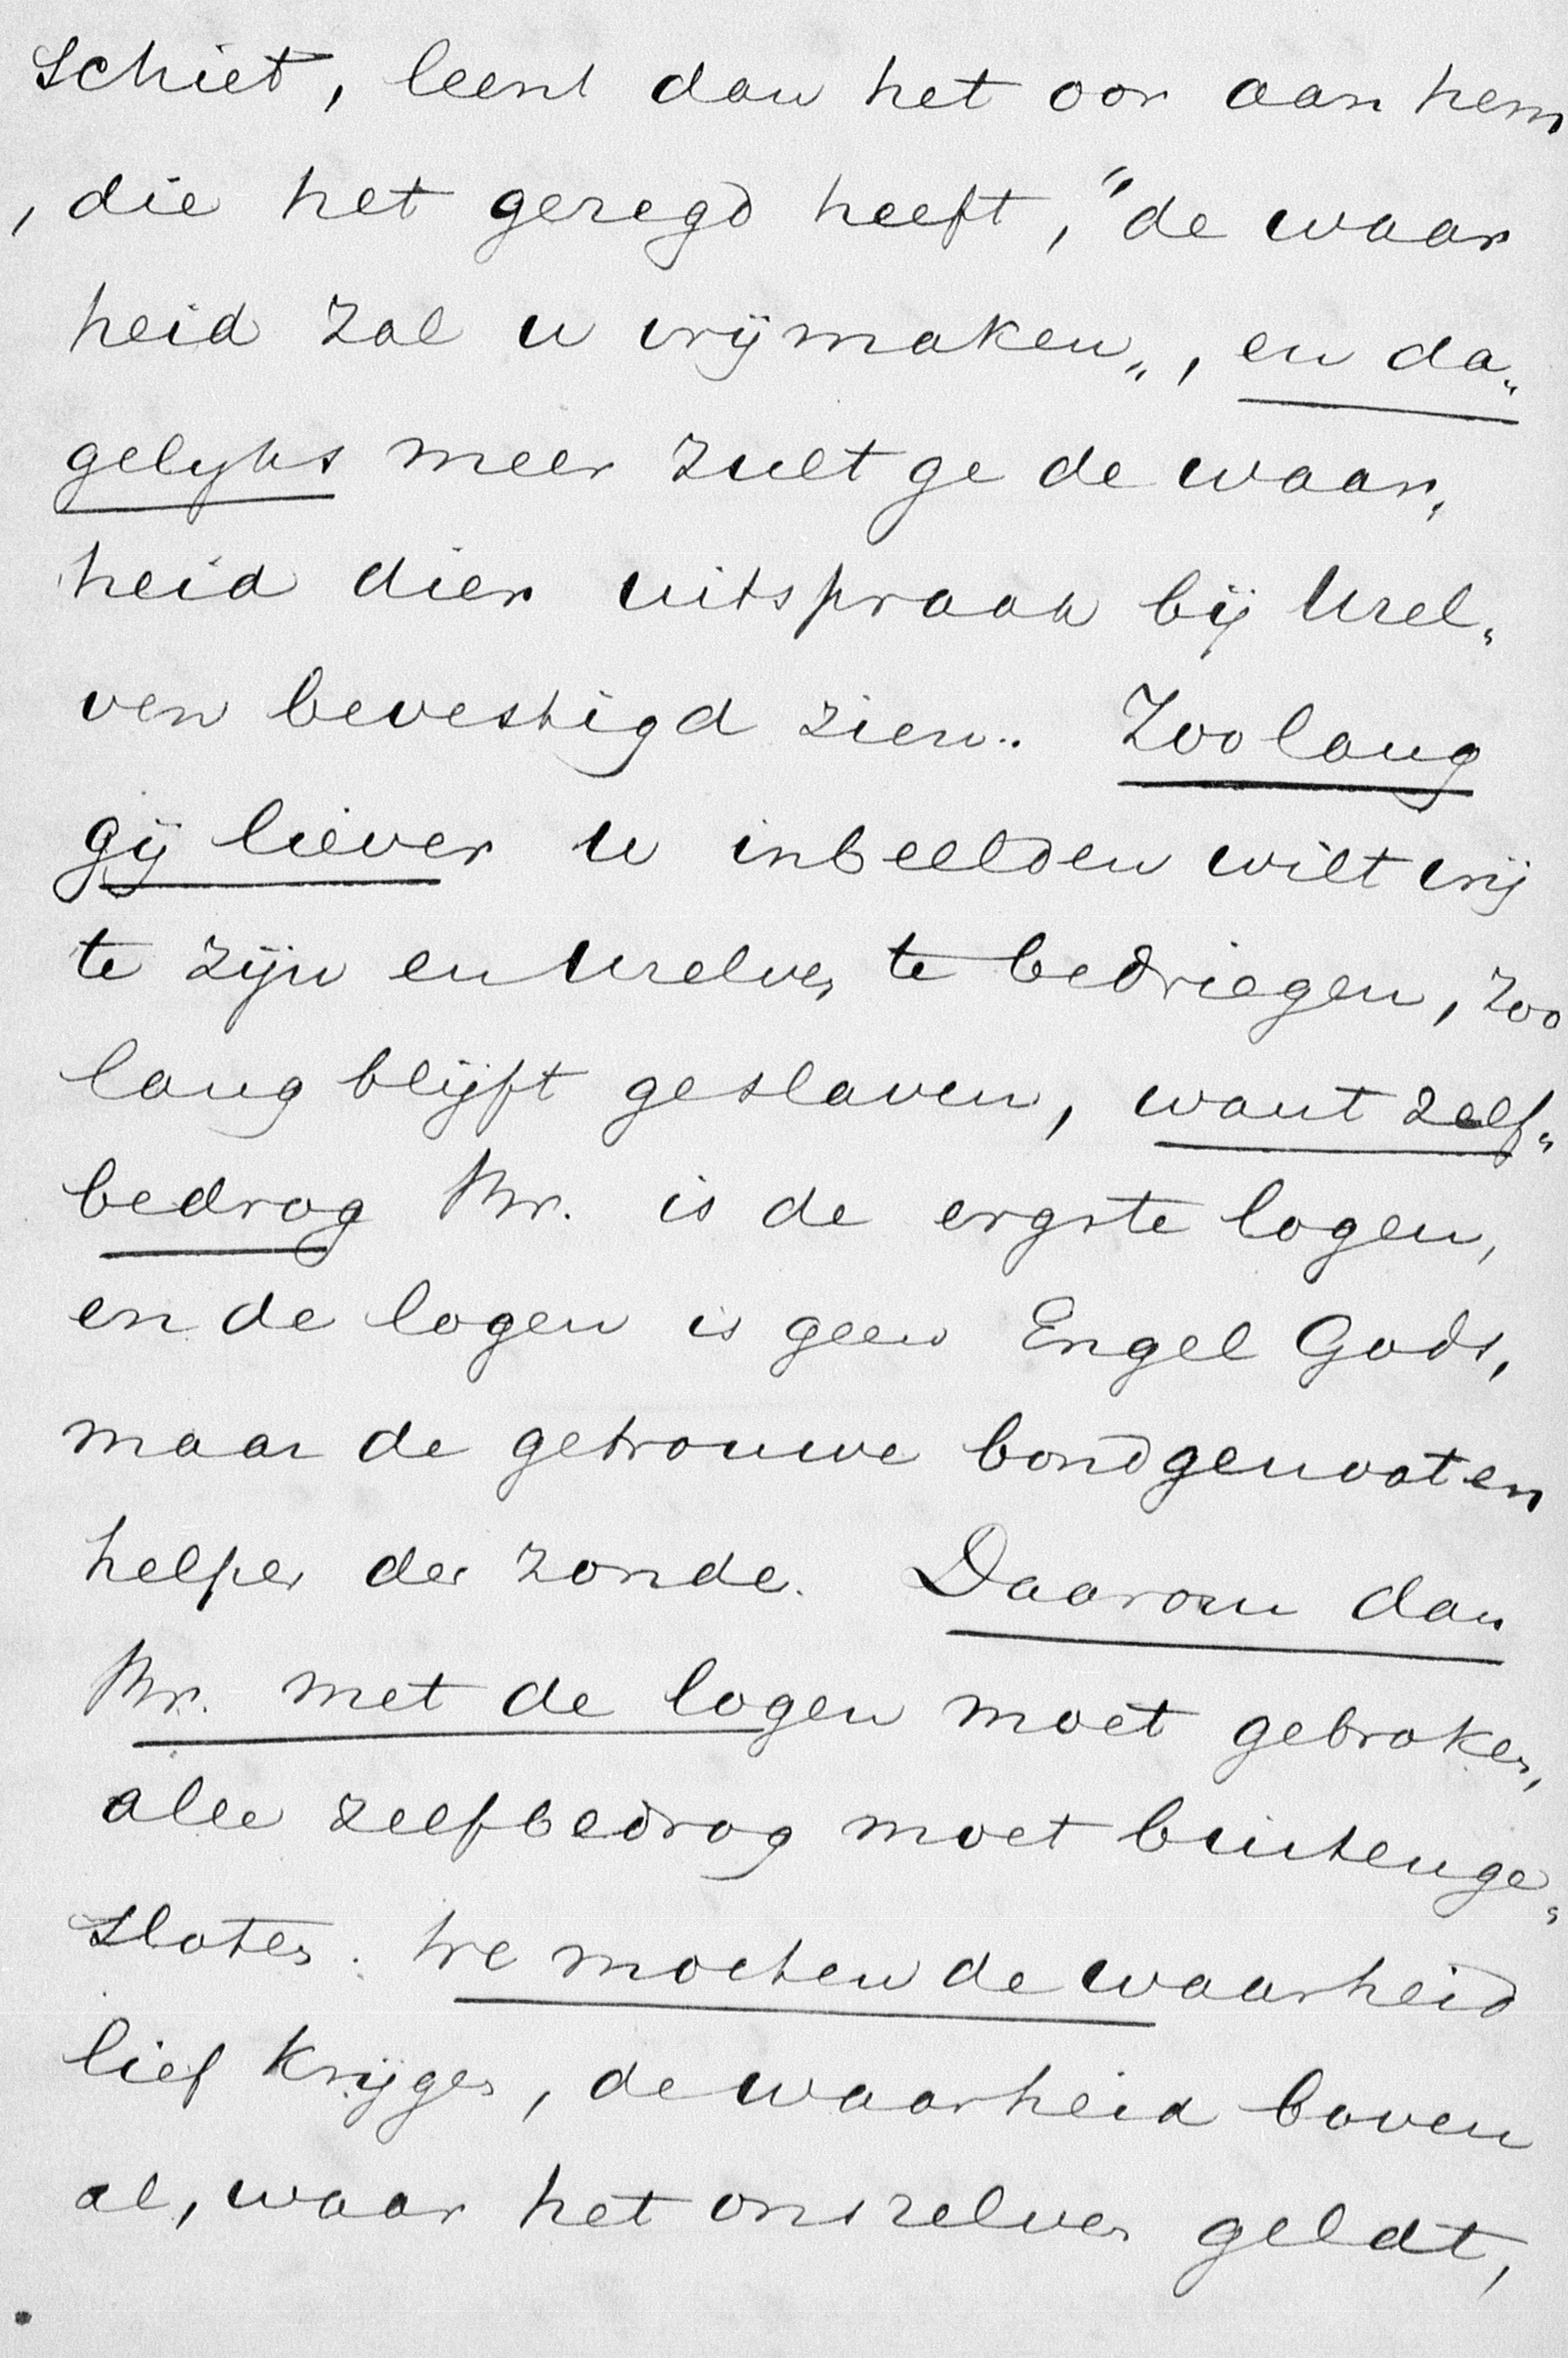 schiet, leent dan het oor aan hem
, die het gezegd heeft, "de waar
heid zal u vrijmaken„, en da„
gelyks meer zult ge de waar„
heid dier uitspraak bij Uzel„
ven bevestigd zien. Zoolang
gij liever u inbeelden wilt vrij
te zijn en Uzelven te bedriegen, zoo
lang blijft ge slaven, want zelf„
bedrog Br. is de ergste logen,
en de logen is geen Engel Gods,
maar de getrouwe bondgenoot en
helper der zonde. Daarom dan
Br. met de logen moet gebroken,
alle zelfbedrog moet buitenge„
sloten. We moeten de waarheid
lief krijgen, de waarheid boven
al, waar het onszelven geldt,